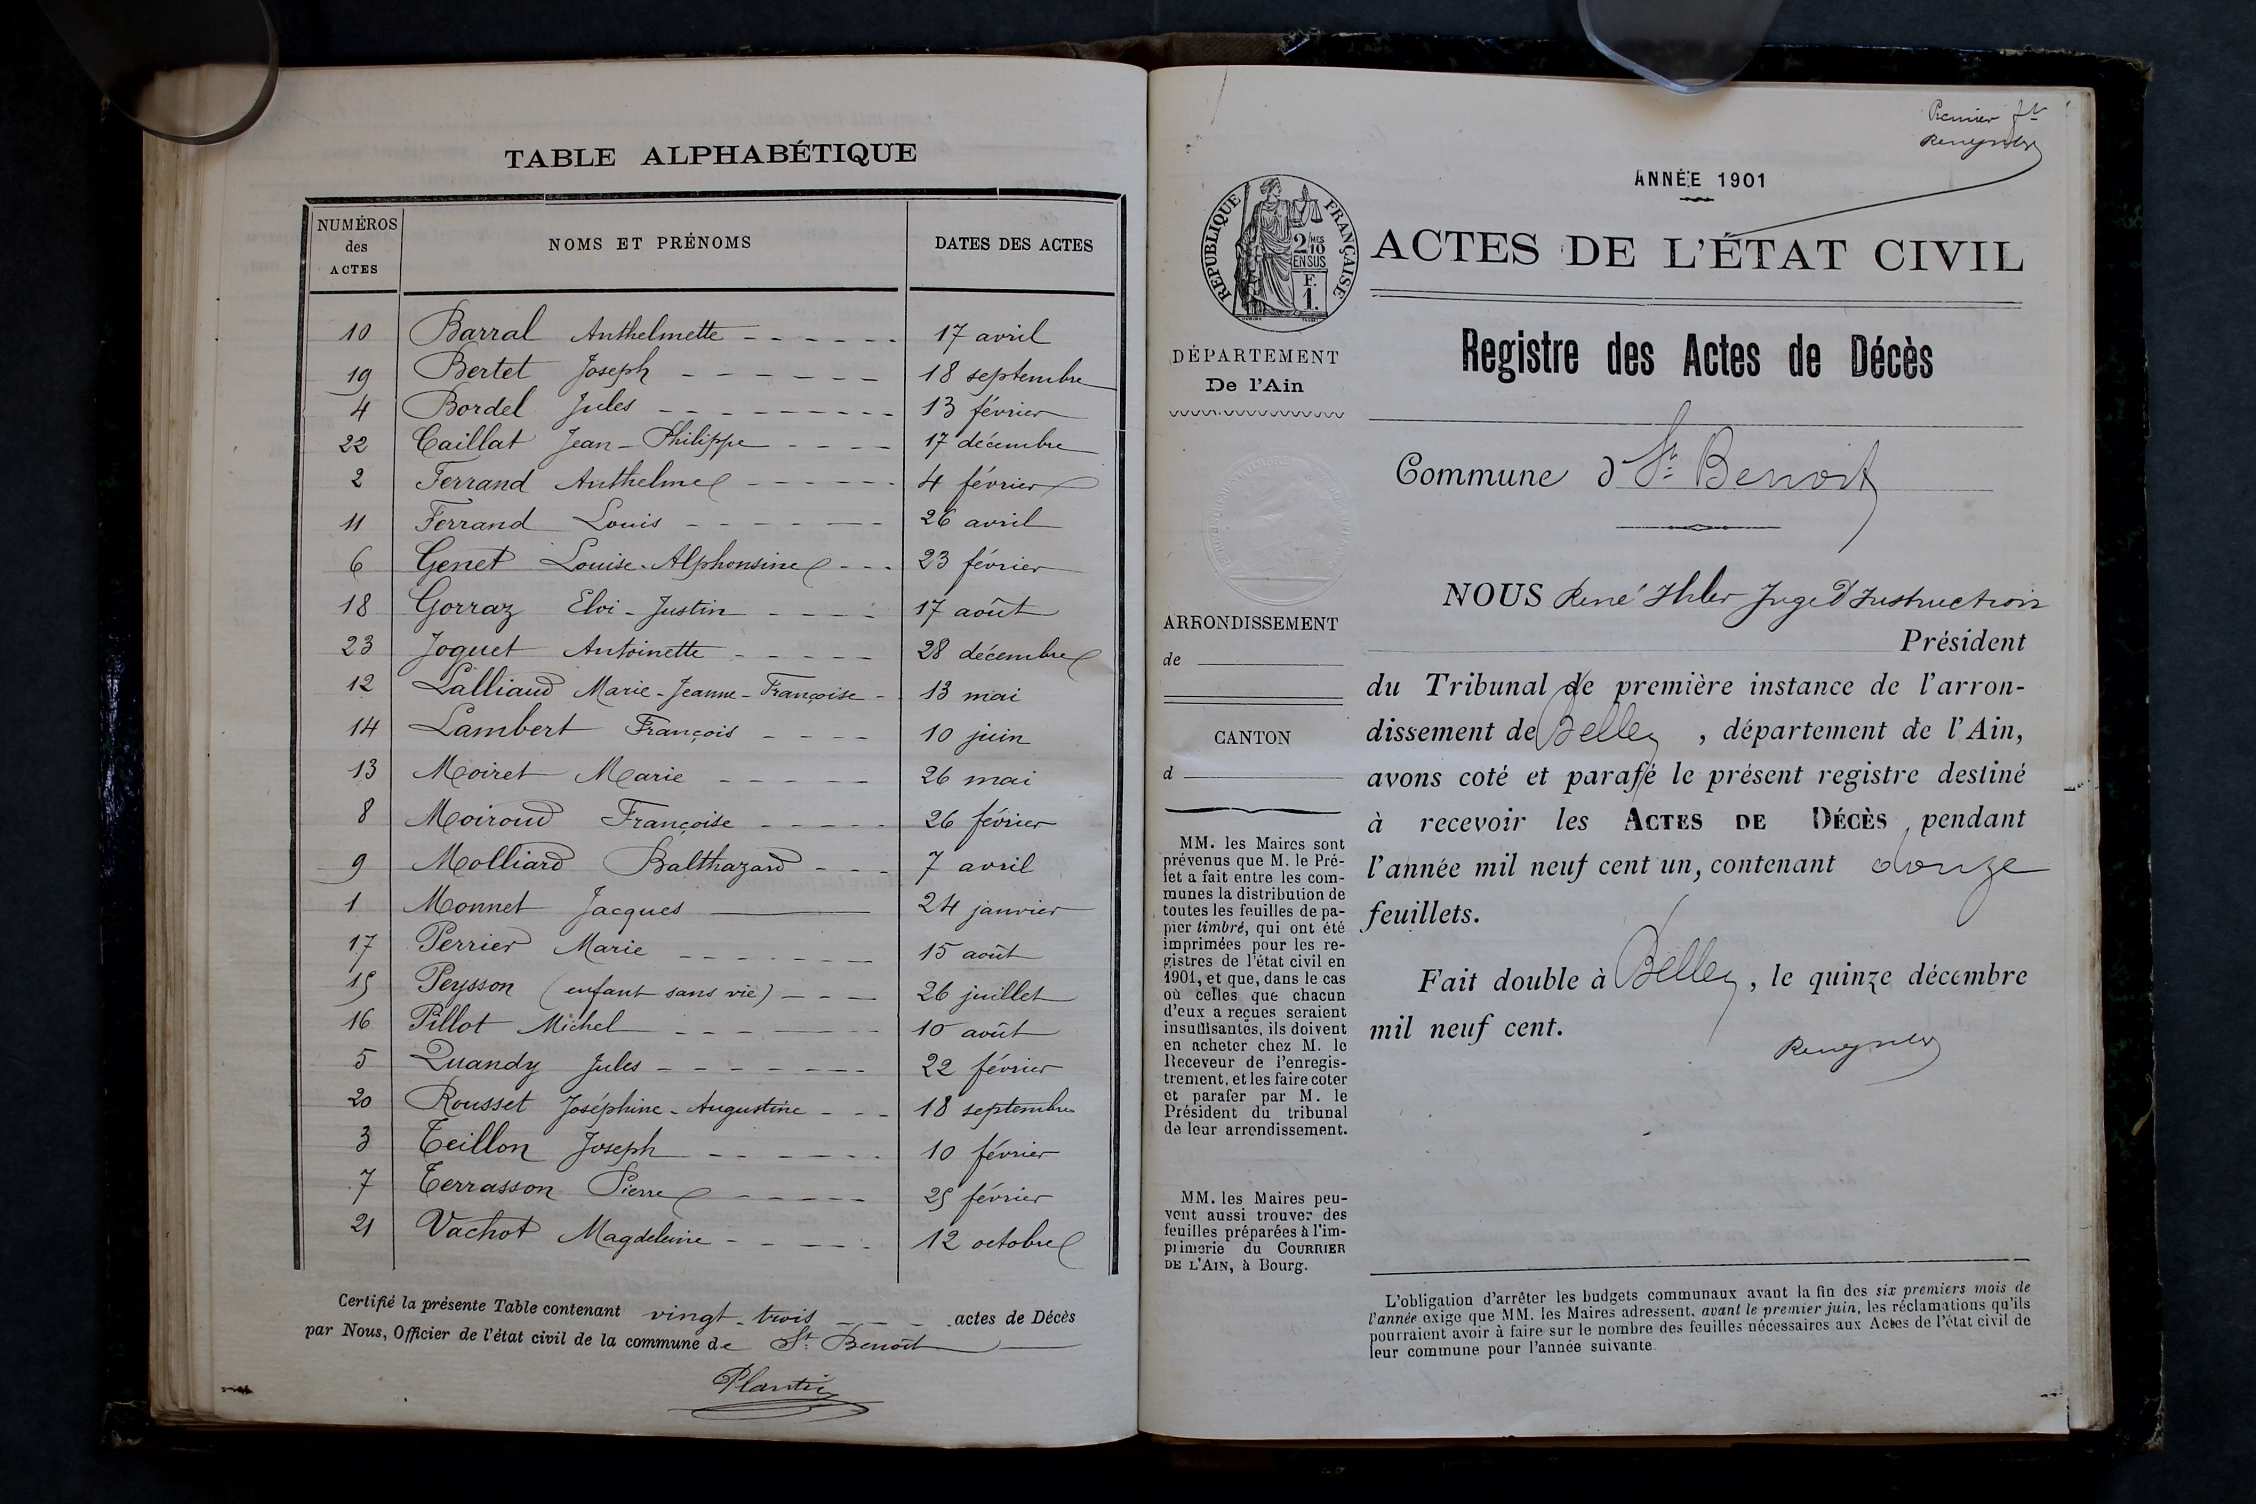 TABLE ALPHABÉTIQUE
NUMÉROS des ACTES NOMS ET PRÉNOMS DATES DES ACTES
10 Barral Anthelmette 17 avril
19 Bertet Joseph 18 septembre
4 Bordel Jules 13 février
22 Caillat Jean-Philippe 17 décembre
2 Ferrand Anthelme 4 février
11 Ferrand Louis 26 avril
6 Genet Louise-Alphonsine 23 février
18 Gorraz Eloi-Justin 17 août
23 Joguet Antoinette 28 décembre
12 Lalliaud Marie-Jeanne-Françoise 13 mai
14 Lambert François 10 juin
13 Moiret Marie 26 mai
8 Moiroud Françoise 26 février
9 Molliard Balthazard 7 avril
1 Monnet Jacques 24 janvier
17 Perrier Marie 15 août
15 Peysson (enfant sans vie) 26 juillet
16 Pillot Michel 10 août
5 Quandy Jules 22 février
20 Rousset Joséphine-Augustine 18 septembre
3 Teillon Joseph 10 février
7 Terrasson Pierre 25 février
21 Vachot Magdeleine 12 octobre
Certifié la présente Table contenant vingt-trois actes de Décès
par Nous, Officier de l'état civil de la commune de St Benoît
Premier ft
ANNÉE 1901
RÉPUBLIQUE FRANÇAISE
2/10 MES
EN SUS
F.
1.
ACTES DE L'ÉTAT CIVIL
DÉPARTEMENT
De l'Ain
Registre des Actes de Décès
Commune d St Benoit
ARRONDISSEMENT
de
CANTON
d
MM. les Maires sont
prévenus que M. le Pré-
fet a fait entre les com-
munes la distribution de
toutes les feuilles de pa-
pier timbré, qui ont été
imprimées pour les re-
gistres de l'état civil en
1901, et que, dans le cas
où celles que chacun
d'eux a reçues seraient
insuffisantes, ils doivent
en acheter chez M. le
Receveur de l'enregis-
trement, et les faire coter
et parafer par M. le
Président du tribunal
de leur arrondissement.
MM. les Maires peu-
vent aussi trouver des
feuilles préparées à l'im-
primerie du COURRIER
DE L'AIN, à Bourg.
NOUS René Ihler Juge d'Instruction
Président
du Tribunal de première instance de l'arron-
dissement de Belley, département de l'Ain,
avons coté et parafé le présent registre destiné
à recevoir les ACTES DE DÉCÈS pendant
l'année mil neuf cent un, contenant douze
feuillets.
Fait double à Belley, le quinze décembre
mil neuf cent.
L'obligation d'arrêter les budgets communaux avant la fin des six premiers mois de
l'année exige que MM. les Maires adressent, avant le premier juin, les réclamations qu'ils
pourraient avoir à faire sur le nombre des feuilles nécessaires aux Actes de l'état civil de
leur commune pour l'année suivante